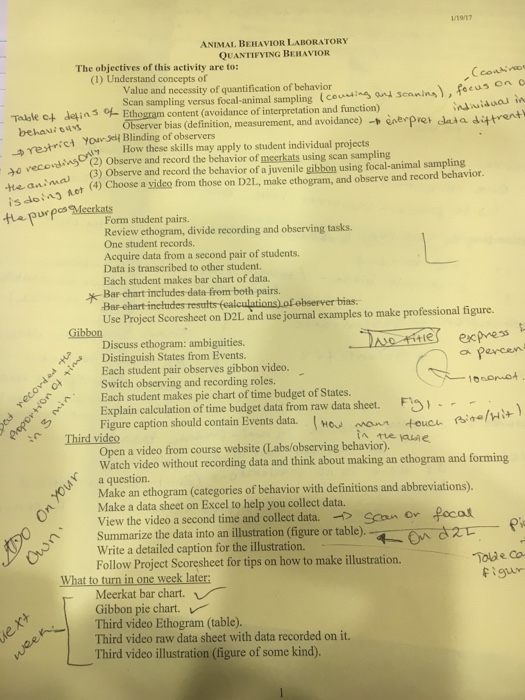 1/19/17
ANIMAL BEHAVIOR LABORATORY
QUANTIFYING BEHAVIOR
The objectives of this activity are to:
(1) Understand concepts of
Value and necessity of quantification of behavior
Scan sampling versus focal-animal sampling (counting and scaning), focus on
Ethogram content (avoidance of interpretation and function)
individual in
Table of defins of behaviours
Observer bias (definition, measurement, and avoidance)
data
→ restrict yourself to recording only the animal is doing not the purpose
Blinding of observers
How these skills may apply to student individual projects
(2) Observe and record the behavior of meerkats using scan sampling
(3) Observe and record the behavior of a juvenile gibbon using focal-animal sampling
(4) Choose a video from those on D2L, make ethogram, and observe and record behavior.
Meerkats
Form student pairs.
Review ethogram, divide recording and observing tasks.
One student records.
Acquire data from a second pair of students.
Data is transcribed to other student.
Each student makes bar chart of data.
* Bar chart includes data from both pairs.
Bar chart includes results (calculations) of observer bias.
Use Project Scoresheet on D2L and use journal examples to make professional figure.
Gibbon
No title
express
a percen
Discuss ethogram: ambiguities.
Distinguish States from Events.
Each student pair observes gibbon video.
locomot.
Switch observing and recording roles.
recorded the proportion of time in 3 min.
Each student makes pie chart time budget of States.
Explain calculation of time budget data from raw data sheet.
Fig 1 - - -
Figure caption should contain Events data. (How many touch Bite/Hit)
in the
Third video
Open a video from course website (Labs/observing behavior).
Watch video without recording data and think about making an ethogram and forming
a question.
Make an ethogram (categories of behavior with definitions and abbreviations).
Make a data sheet on Excel to help you collect data.
DO ON your own.
View the video a second time and collect data. → Scan or focal
Summarize the data into an illustration (figure or table). ← On d2L
Write a detailed caption for the illustration.
Table
figur
Follow Project Scoresheet for tips on how to make illustration.
What to turn in one week later:
Meerkat bar chart. ✓
Gibbon pie chart. ✓
next week
Third video Ethogram (table).
Third video raw data sheet with data recorded on it.
Third video illustration (figure of some kind).
1